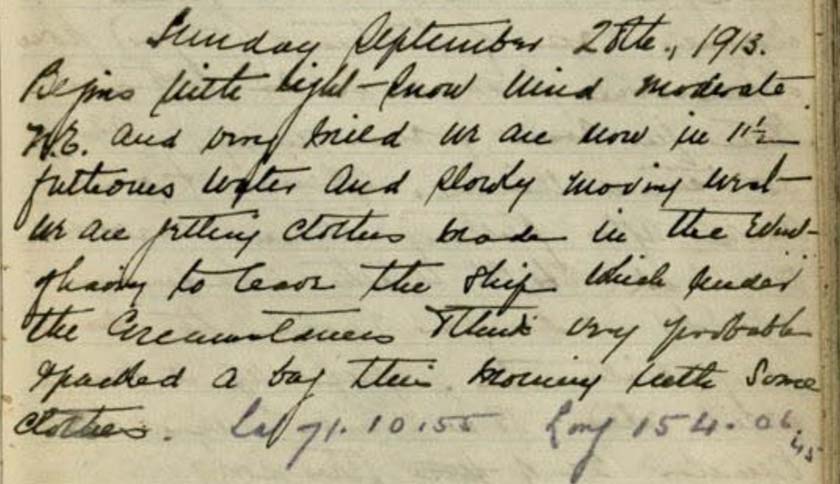 Sunday September 28th., 1913.
Begins with light snow Wind moderate
N.E. and very mild we are now in 11½
fathoms water and slowly moving west
we are getting clothes made in the Event
of having to leave the ship which under
the Circumstances I think very probable
I packed a bag this morning with Some
clothes. Lat 71.10.55 Long 154.06.45